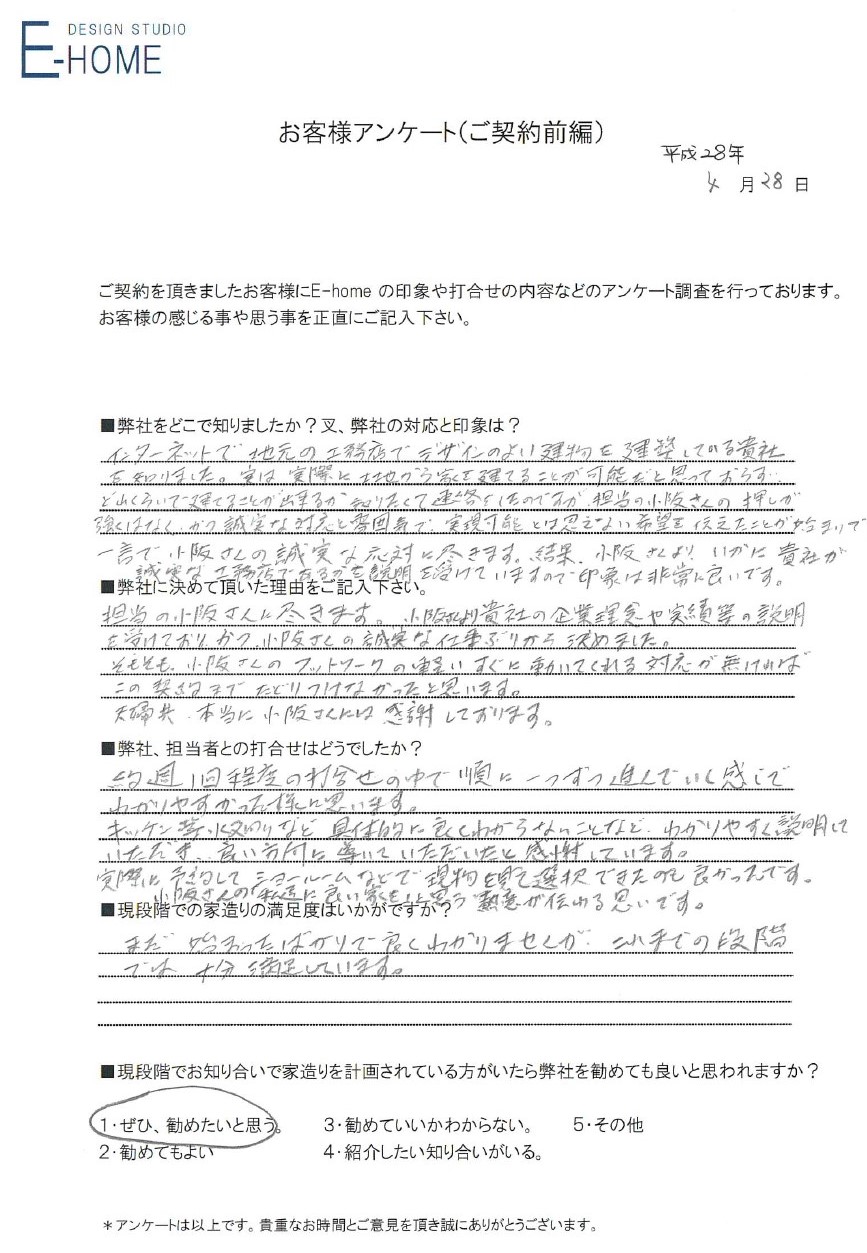 DESIGN STUDIO
E-HOME
お客様アンケート(ご契約前編)
平成28年
4 月 28 日
ご契約を頂きましたお客様にE-home の印象や打合せの内容などのアンケート調査を行っております。
お客様の感じる事や思う事を正直にご記入下さい。
■弊社をどこで知りましたか?叉、弊社の対応と印象は?
インターネットで地元の工務店でデザインのよい建物を建築してる貴社
を知りました。実は実際に土地から家を建てることが可能だと思っておらず、
どれくらいで建てることが出来るか知りたくて連絡をしたのですが、担当の小阪さんの押しが
強くはなく、かつ誠実な対応と雰囲気で、実現可能とは思えない希望を伝えたことが始まりで
一言で小阪さんの誠実な応対に尽きます。結果、小阪さんより、いかに貴社が
誠実な工務店であるかを説明を受けていますので印象は非常に良いです。
■弊社に決めて頂いた理由をご記入下さい。
担当の小阪さんに尽きます。小阪さんより貴社の企業理念や実績等の説明
を受けており、かつ、小阪さんの誠実な仕事ぶりから決めました。
そもそも、小阪さんのフットワークの軽いすぐに動いてくれる対応が無ければ
この契約までたどりつけなかったと思います。
夫婦共、本当に小阪さんには感謝しております。
■弊社、担当者との打合せはどうでしたか?
約週1回程度の打合せの中で順に一つずつ進んでいく感じで
わかりやすかった様に思います。
キッチン等、水廻りなど具体的に良くわからないことなど、わかりやすく説明して
いただき、良い方向に導いていただいたと感謝しています。
実際に予約してショールームなどで現物を見て選択できたのも良かったです。
小阪さんの「私達に良い家を」と思う熱意が伝わる思いです。
■現段階での家造りの満足度はいかがですか?
まだ始まったばかりで良くわかりませんが、これまでの段階
では十分満足しています。
■現段階でお知り合いで家造りを計画されている方がいたら弊社を勧めても良いと思われますか?
1・ぜひ、勧めたいと思う。 3・勧めていいかわからない。 5・その他
2・勧めてもよい 4・紹介したい知り合いがいる。
*アンケートは以上です。貴重なお時間とご意見を頂き誠にありがとうございます。